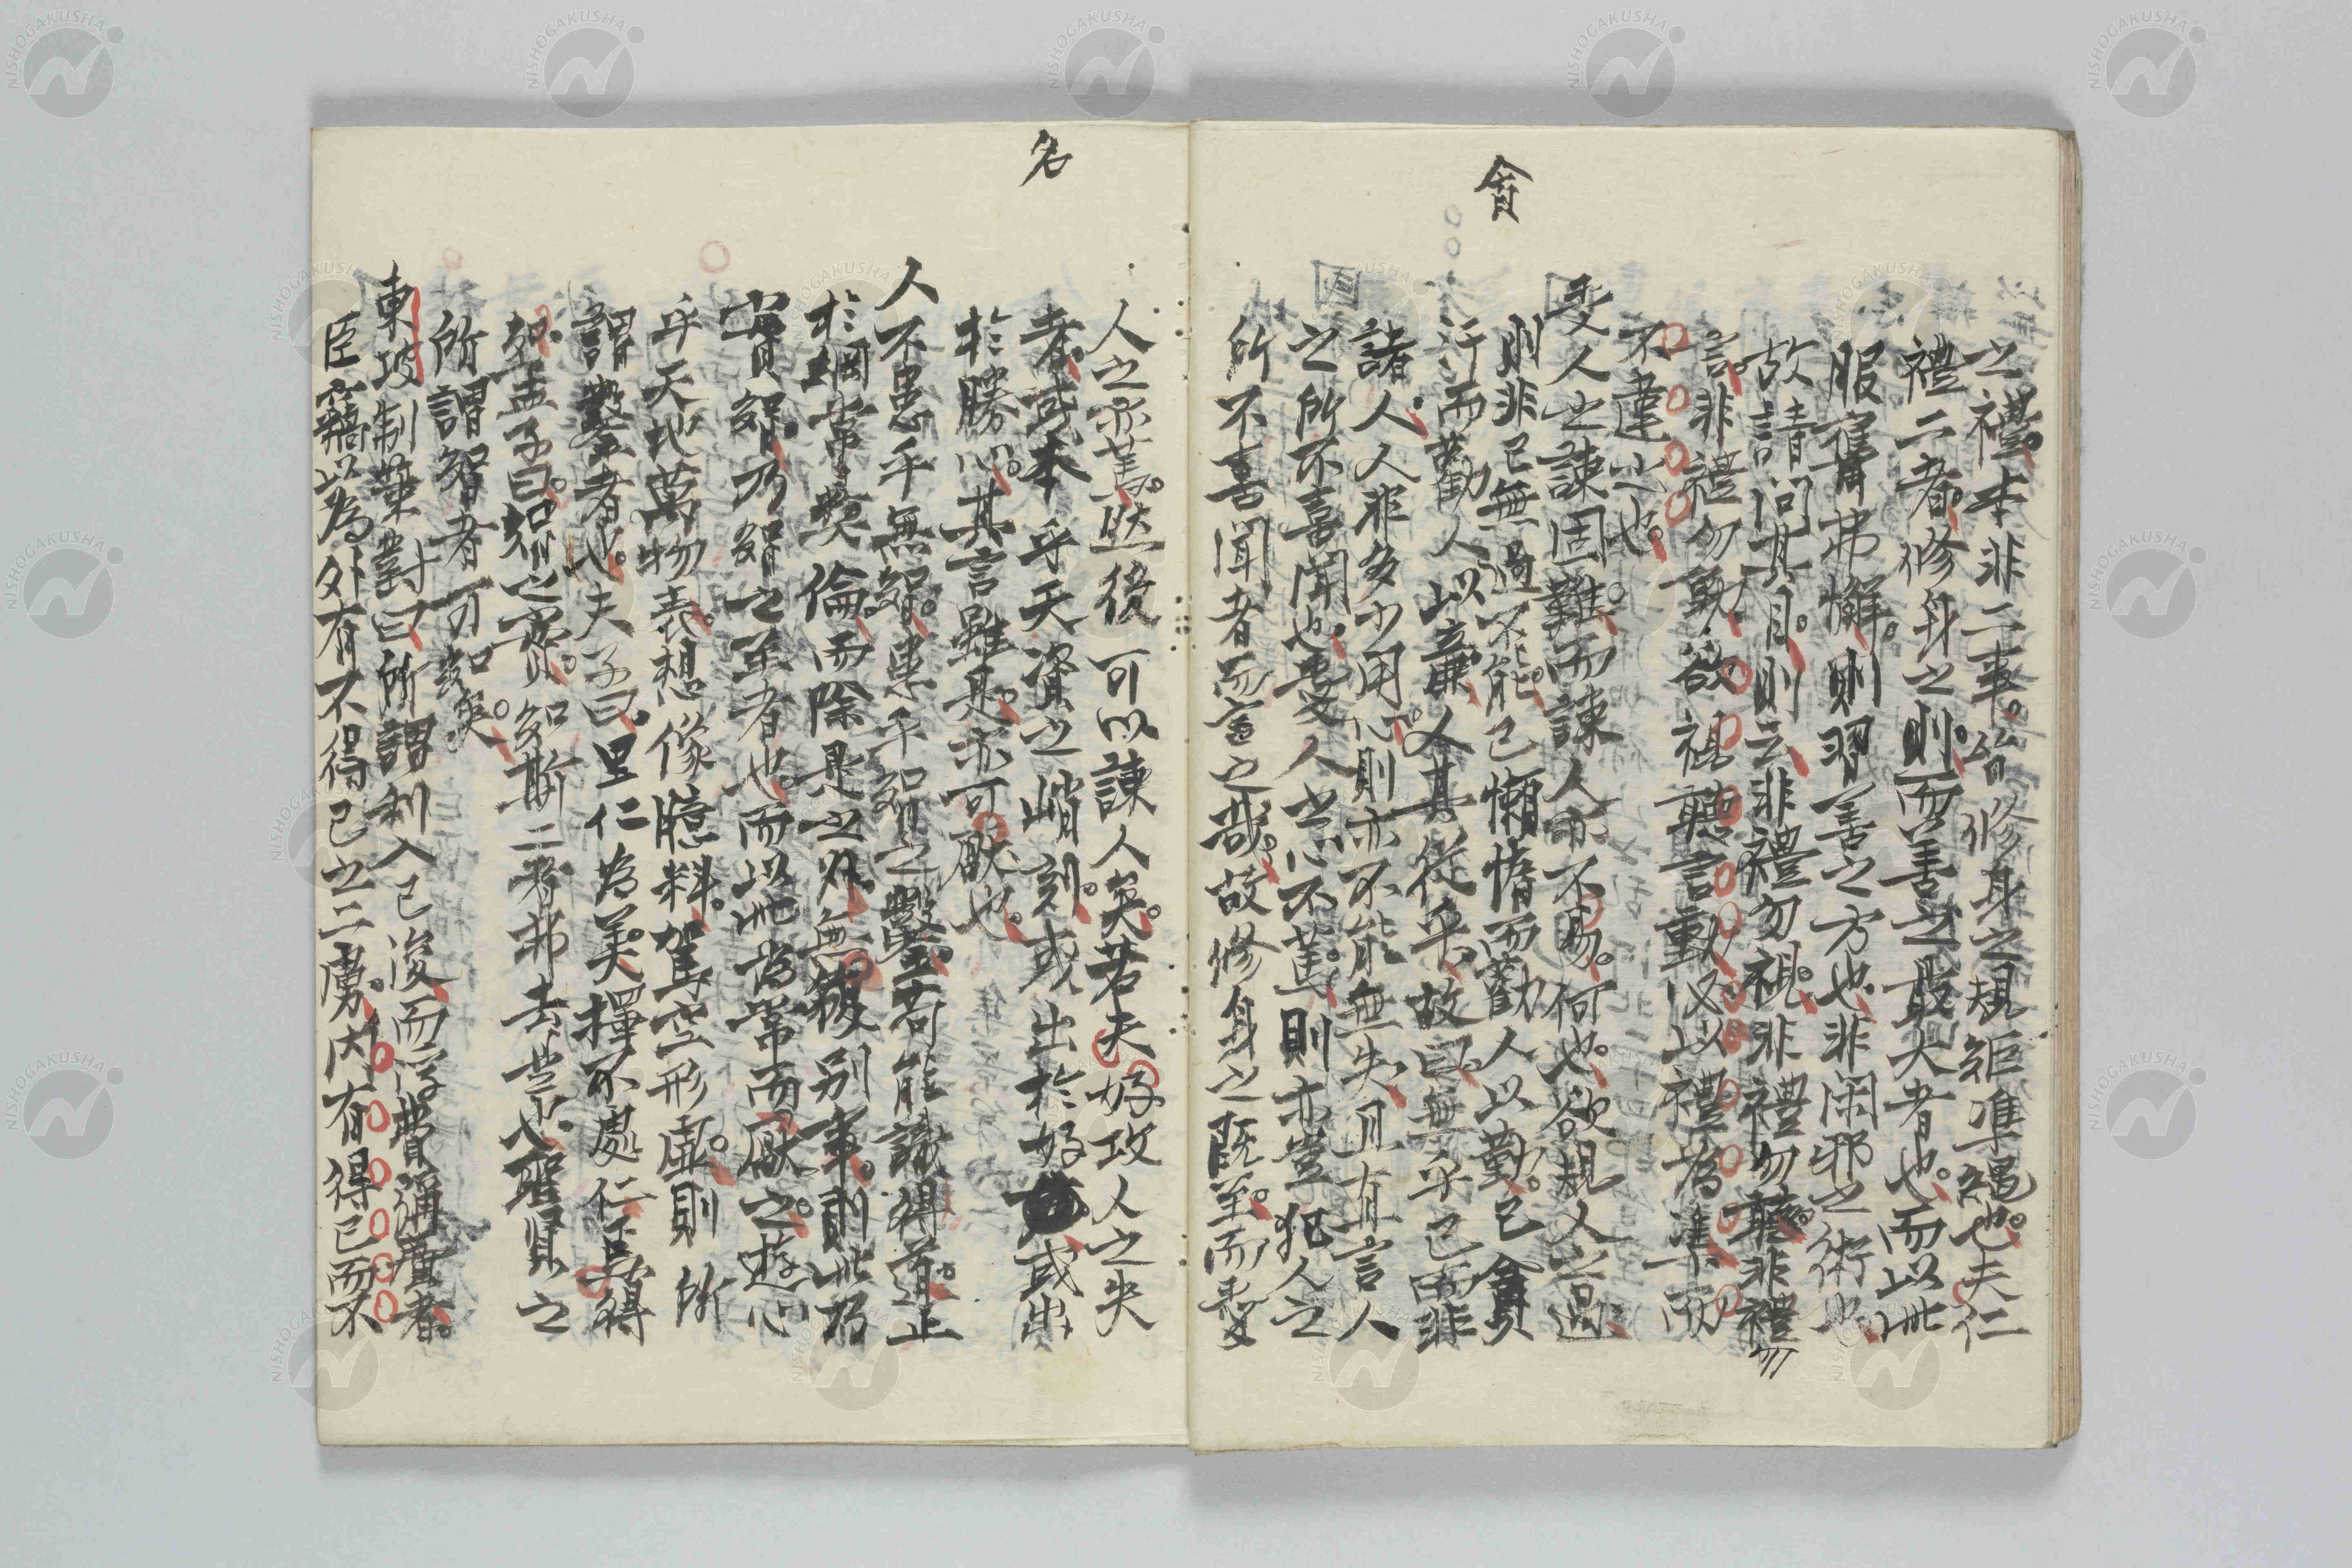 之禮。本非二事。皆修身之規矩準繩也。夫仁
禮二者。修身之則。而善之最大者也。而以此
服膺弗懈。則習善之方也。非閑邪之術也
故請問其目。則云非禮勿視。非禮勿聽。非禮勿
言。非禮勿動。欲視聽言動必以禮為準而
不違也。
受人之諫固難。而諫人亦不易。何也。欲規人之過
則非己無過不能。己懶惰而勸人以勤。己貪
汙而勸人以廉。人其從乎。故曰無乎己而非
諸人。人非多少用心。則亦不能無失。且有言人
之所不喜聞也。受人忠不薄。則亦豈犯人之
所不喜聞者而言之哉。故修身之既至。而受
會
人之亦善。然後可以諫人矣。若夫好攻人之失
者。或本乎天資之峭刻。或出於好 或出
於勝心。其言雖是。亦可厭也。
人不患乎無智。患乎智之鑿。苟能識得道止
於綱常彝倫。而除是之外無複別事。則此乃
實智。乃智之至者也。而以此為常而厭之。遊心
乎天地萬物表。想像臆料。駕空形虛。則所
謂鑿者也。夫子曰。里仁為美。擇不處仁焉得
智。孟子曰。智之實。知斯二者弗去。豈非聖賢之
所謂智者可知矣。
東坡制策對曰。所謂利入已浚而浮費彌廣者。
臣竊以為外有不得已之二虜。內有得已而不
名
NISHOGAKUSHA